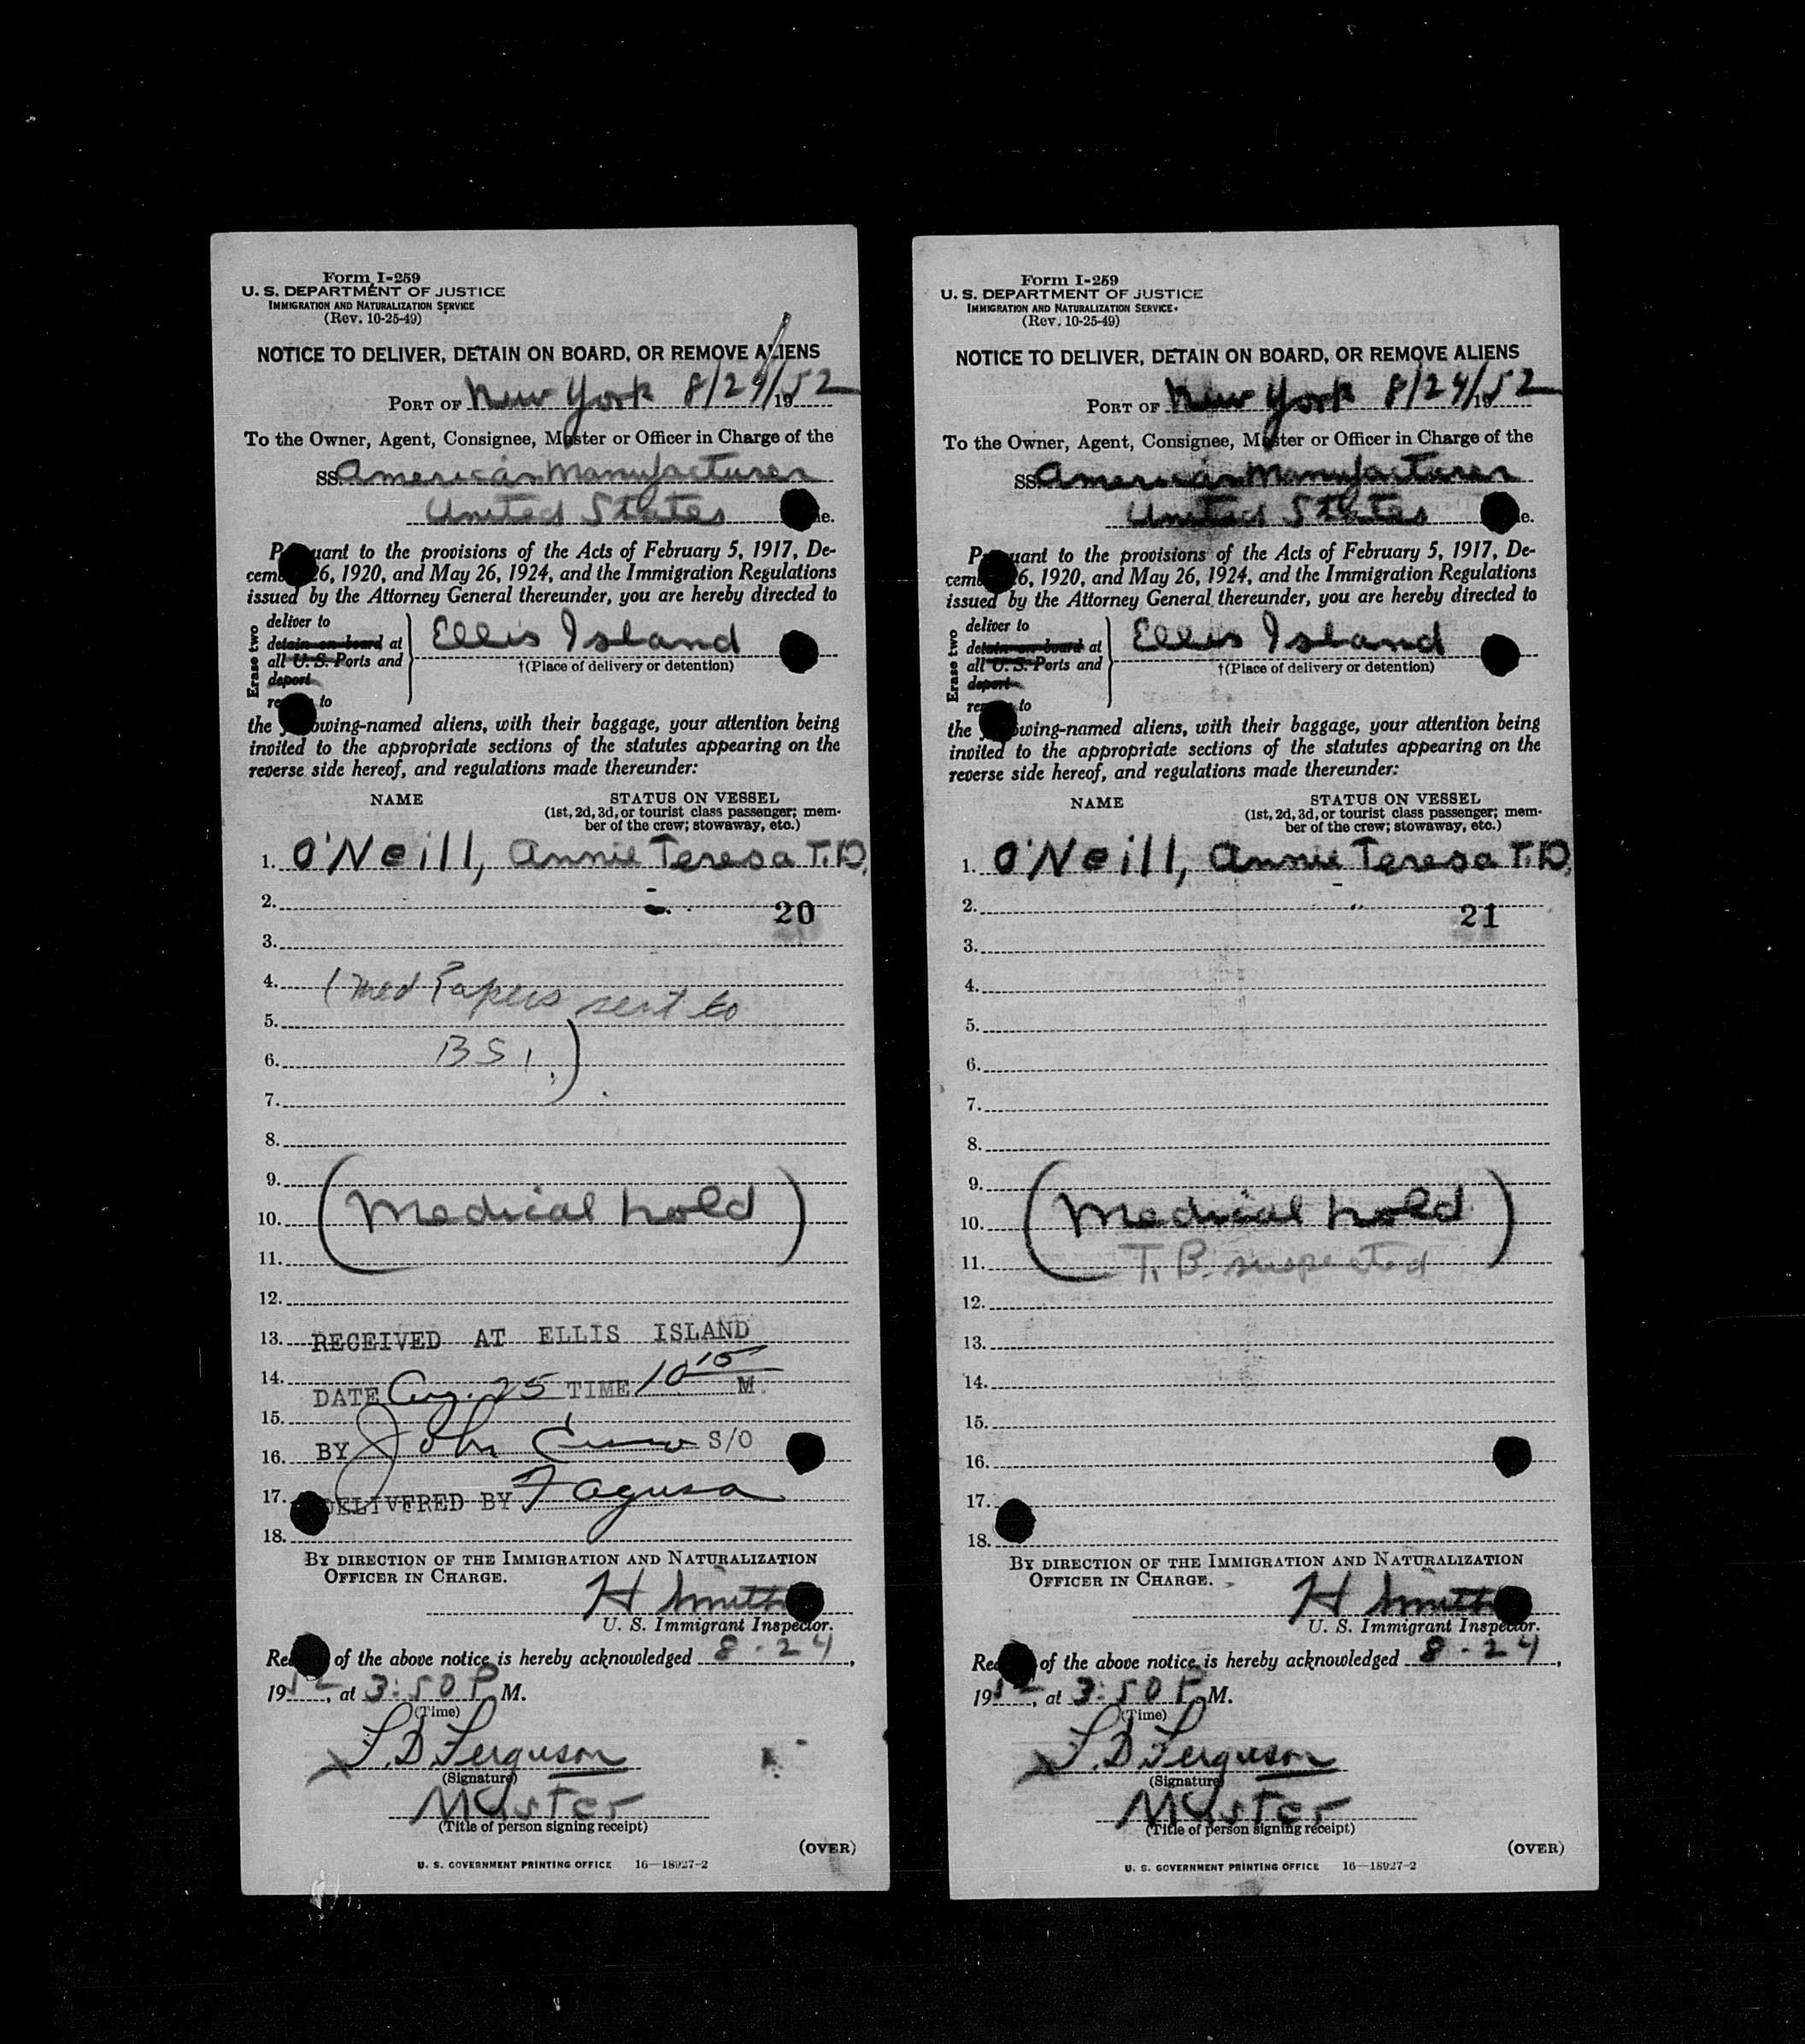 Form I-259
U. S. DEPARTMENT OF JUSTICE
IMMIGRATION AND NATURALIZATION SERVICE
(Rev. 10-25-49)
NOTICE TO DELIVER, DETAIN ON BOARD, OR REMOVE ALIENS
PORT OF New York 8/24/1952
To the Owner, Agent, Consignee, Master or Officer in Charge of the
SS. American Manufacturer
United States
Pursuant to the provisions of the Acts of February 5, 1917, De-
cember 26, 1920, and May 26, 1924, and the Immigration Regulations
issued by the Attorney General thereunder, you are hereby directed to
Erase two
deliver to
detain on board at
all U. S. Ports and
deport
to
Ellis Island
†(Place of delivery or detention)
the following-named aliens, with their baggage, your attention being
invited to the appropriate sections of the statutes appearing on the
reverse side hereof, and regulations made thereunder:
NAME STATUS ON VESSEL
(1st, 2d, 3d, or tourist class passenger; mem-
ber of the crew; stowaway, etc.)
1. O'Neill, Annie Teresa T.D.
2. 20
3.
4. (Med Papers sent to
5.
6. BSI.)
7.
8.
9.
10. (Medical hold)
11.
12.
13. RECEIVED AT ELLIS ISLAND
14. DATE Aug. 25 TIME 10 15 M.
15.
16. BY John S/O
17. DELIVERED BY Fagusa
18.
BY DIRECTION OF THE IMMIGRATION AND NATURALIZATION
OFFICER IN CHARGE.
H Smith
U. S. Immigrant Inspector.
Receipt of the above notice is hereby acknowledged 8-24,
1952, at 3:50 P M.
(Time)
X S. D. Ferguson
(Signature)
Master
(Title of person signing receipt)
(OVER)
U. S. GOVERNMENT PRINTING OFFICE 16—18927-2
Form I-259
U. S. DEPARTMENT OF JUSTICE
IMMIGRATION AND NATURALIZATION SERVICE
(Rev. 10-25-49)
NOTICE TO DELIVER, DETAIN ON BOARD, OR REMOVE ALIENS
PORT OF New York 8/24/1952
To the Owner, Agent, Consignee, Master or Officer in Charge of the
SS. American Manufacturer
United States
Pursuant to the provisions of the Acts of February 5, 1917, De-
cember 26, 1920, and May 26, 1924, and the Immigration Regulations
issued by the Attorney General thereunder, you are hereby directed to
Erase two
deliver to
detain on board at
all U. S. Ports and
deport
to
Ellis Island
†(Place of delivery or detention)
the following-named aliens, with their baggage, your attention being
invited to the appropriate sections of the statutes appearing on the
reverse side hereof, and regulations made thereunder:
NAME STATUS ON VESSEL
(1st, 2d, 3d, or tourist class passenger; mem-
ber of the crew; stowaway, etc.)
1. O'Neill, Annie Teresa T.D.
2. 21
3.
4.
5.
6.
7.
8.
9.
10. (Medical hold)
11. T.B. suspected
12.
13.
14.
15.
16.
17.
18.
BY DIRECTION OF THE IMMIGRATION AND NATURALIZATION
OFFICER IN CHARGE.
H Smith
U. S. Immigrant Inspector.
Receipt of the above notice is hereby acknowledged 8-24,
1952, at 3:50 P M.
(Time)
X S. D. Ferguson
(Signature)
Master
(Title of person signing receipt)
(OVER)
U. S. GOVERNMENT PRINTING OFFICE 16—18927-2